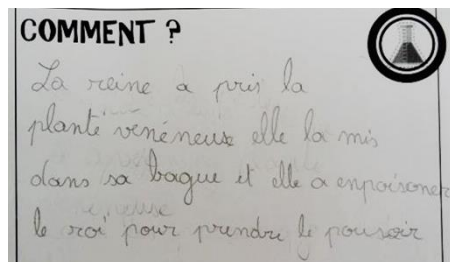 COMMENT ?
La reine a pris la
plante vénéneuse elle la mis
dans sa bague et elle a enpoisoner
le roi pour prendre le pousoir